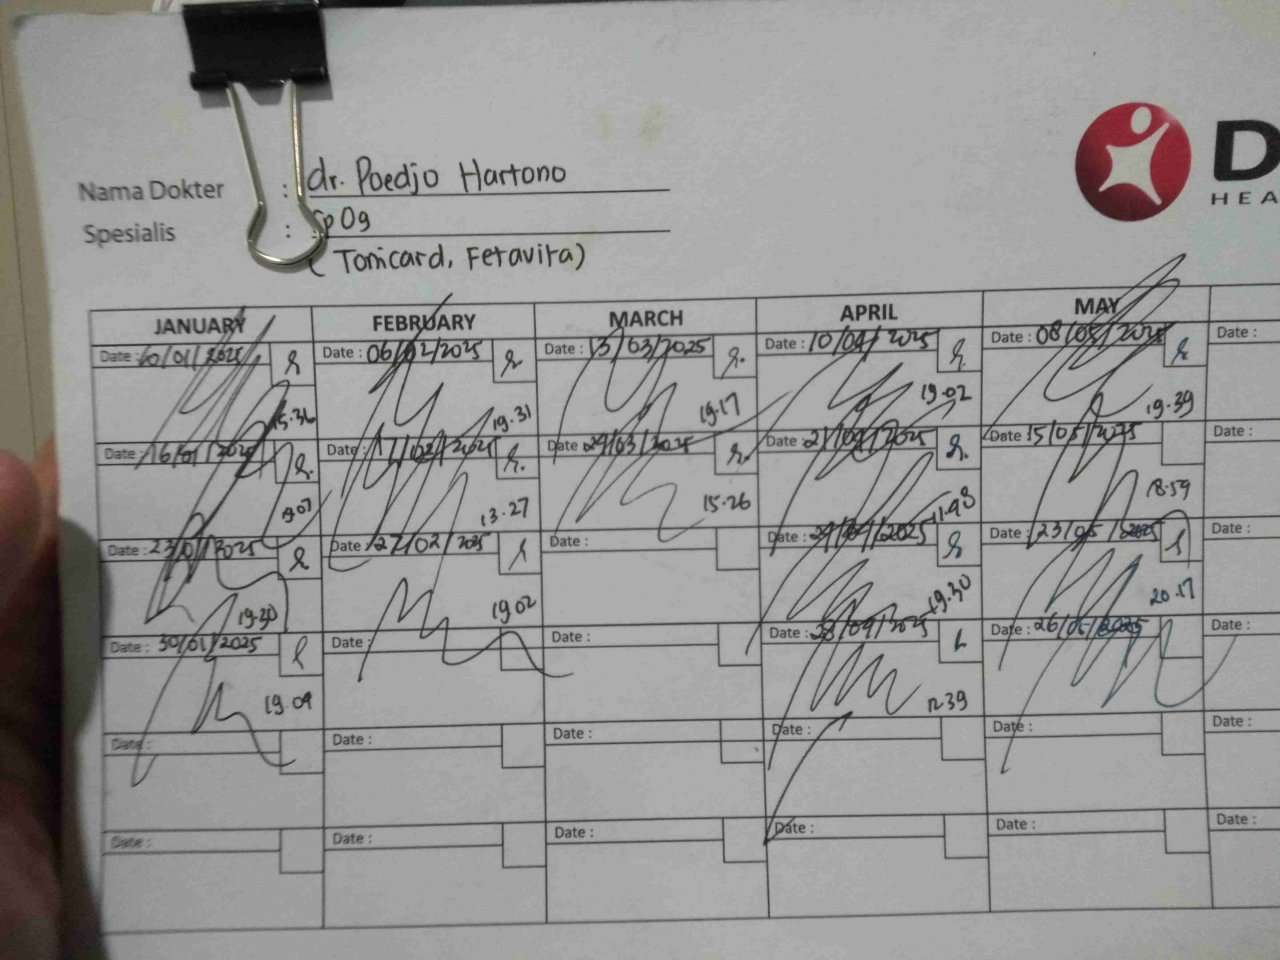 Nama Dokter : dr. Poedjo Hartono
Spesialis : Sp Og
(Tonicard, Fetavita)
D
HEA
JANUARY FEBRUARY MARCH APRIL MAY
Date : 10/01/2025 Date : 06/02/2025 Date : 13/03/2025 Date : 10/04/2025 Date : 08/05/2025 Date :
15.36 19.31 19.17 19.02 19.39
Date : 16/01/2025 Date : 17/02/2025 Date 24/03/2025 Date : 21/04/2025 Date 15/05/2025 Date :
13.27 15.26 18.59
Date : 23/01/2025 Date : 27/02/2025 Date : Date : 24/04/2025 Date : 23/05/2025 Date :
19.30 19.02 19.30 20.17
Date : 30/01/2025 Date : Date : Date : 28/04/2025 Date : 26/05/2025 Date :
19.09 12.39
Date : Date : Date : Date : Date : Date :
Date : Date : Date : Date : Date : Date :